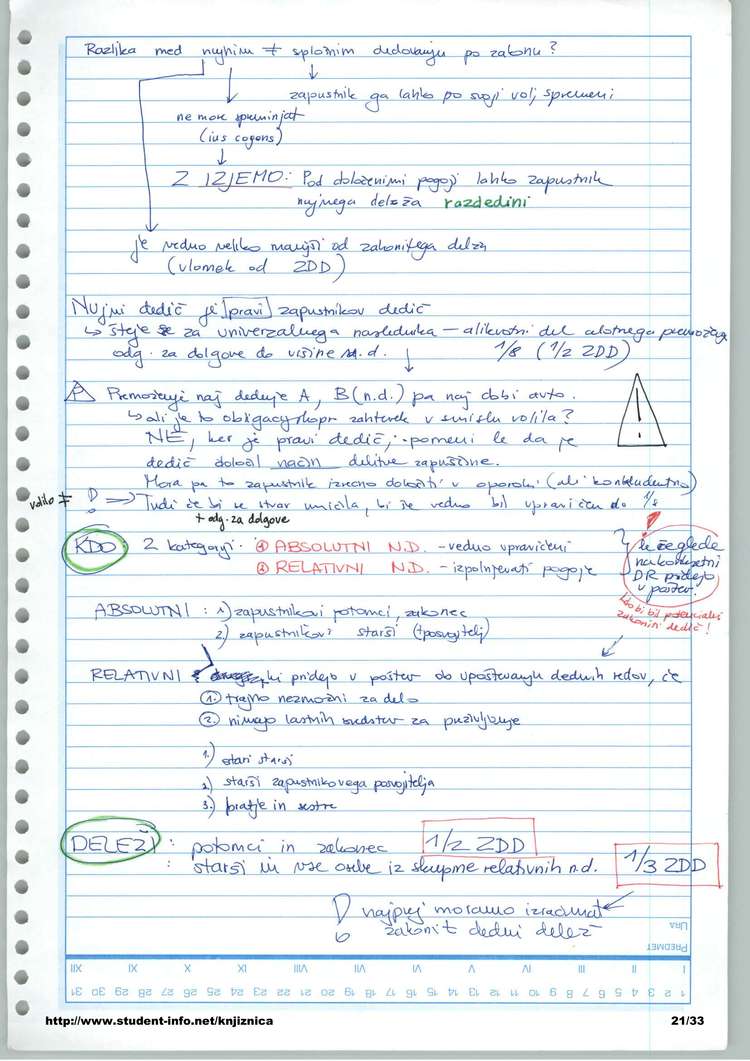 Razlika med nujnim ≠ splošnim dedovanju po zakonu?
zapustnik ga lahko po svoji volj spremeni
ne more spreminjat
(ius cogens)
Z IZJEMO: Pod določenimi pogoji lahko zapustnik
nujnega deleža razdedini
je vedno veliko manjši od zakonitega deleža
(ulomek od ZDD)
Nujni dedič je pravi zapustnikov dedič
↳ šteje se za univerzalnega naslednika – alikvotni del celotnega premožen
odg. za dolgove do višine n.d. 1/8 (1/2 ZDD)
P Premoženje naj deduje A, B (n.d.) pa naj dobi avto.
↳ ali je to obligacijskopr zahtevek v smislu volila?
NE, ker je pravi dedič, pomeni le da je
dedič določil način delitve zapuščine.
Mora pa to zapustnik izrecno določiti v oporoki (ali konkludentno)
volilo ≠ ! ⇒ Tudi če bi se stvar uničila, bi še vedno bil upravičen do 1/8
+ odg. za dolgove
KDO: 2 kategoriji: ① ABSOLUTNI N.D. - vedno upravičeni
② RELATIVNI N.D. - izpolnjevati pogoje
le če glede
na konkretni
DR pridejo
v poštev!
kdo bi bil potencialni
zakoniti dedič!
ABSOLUTNI: 1) zapustnikovi potomci, zakonec
2) zapustnikovi starši (+posvojitelj)
RELATIVNI ki pridejo v poštev ob upoštevanju dednih redov, če
①. trajno nezmožni za delo
②. nimajo lastnih sredstev za preživljanje
1.) stari starši
2.) starši zapustnikovega posvojitelja
3.) bratje in sestre
DELEŽI: potomci in zakonec 1/2 ZDD
: starši in vse osebe iz skupine relativnih n.d. 1/3 ZDD
! najprej moramo izračunat
zakonit dedni delež
URA
PREDMET
I II III IV V VI VII VIII IX X XI XII
1 2 3 4 5 6 7 8 9 10 11 12 13 14 15 16 17 18 19 20 21 22 23 24 25 26 27 28 29 30 31
http://www.student-info.net/knjiznica 21/33